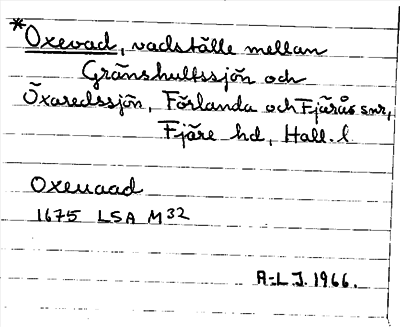 *Oxevad, vadställe mellan
Gränshultssjön och
Öxaredssjön, Förlanda och Fjärås snr,
Fjäre hd, Hall. l.
Oxeuaad
1675 LSA M32
A-L J. 1966.